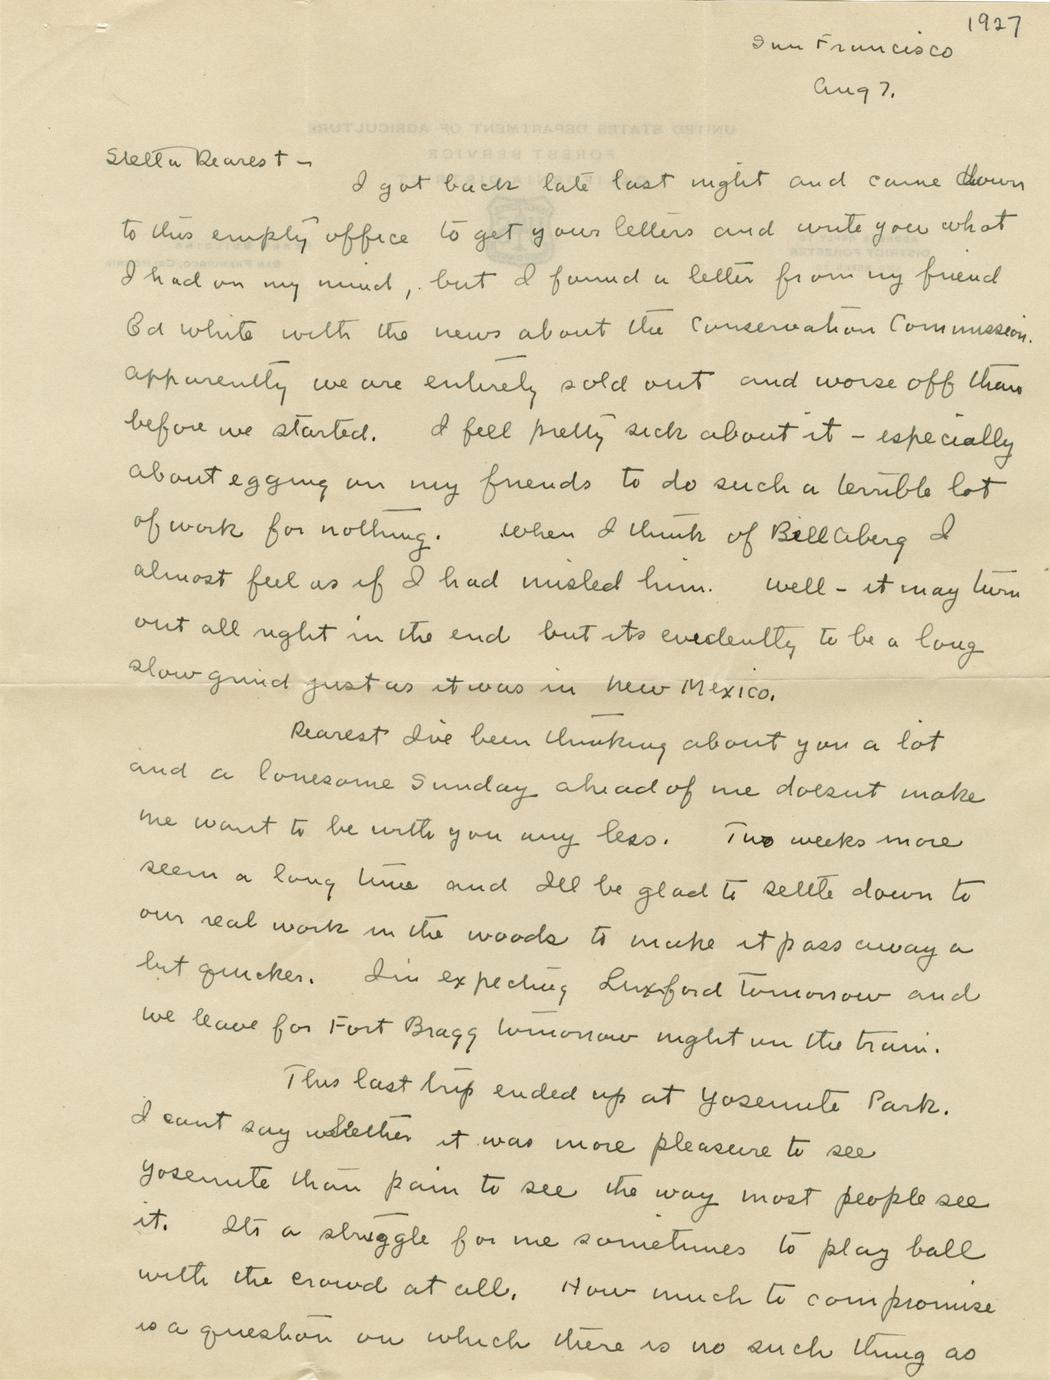 1927
San Francisco
Aug 7.
Stella Dearest —
I got back late last night and came down
to this empty office to get your letters and write you what
I had on my mind, but I found a letter from my friend
Ed White with the news about the Conservation Commission.
apparently we are entirely sold out and worse off than
before we started. I feel pretty sick about it – especially
about egging on my friends to do such a terrible lot
of work for nothing. When I think of Bill Aberg I
almost feel as if I had misled him. Well – it may turn
out all right in the end but its evidently to be a long
slow grind just as it was in New Mexico.
Dearest I've been thinking about you a lot
and a lonesome Sunday ahead of me doesnt make
me want to be with you any less. Two weeks more
seem a long time and I'll be glad to settle down to
our real work in the woods to make it pass away a
bit quicker. I'm expecting Luxford tomorrow and
we leave for Fort Bragg tomorrow night on the train.
This last trip ended up at Yosemite Park.
I cant say whether it was more pleasure to see
Yosemite than pain to see the way most people see
it. Its a struggle for me sometimes to play ball
with the crowd at all. How much to compromise
is a question on which there is no such thing as
UNITED STATES DEPARTMENT OF AGRICULTURE
FOREST SERVICE